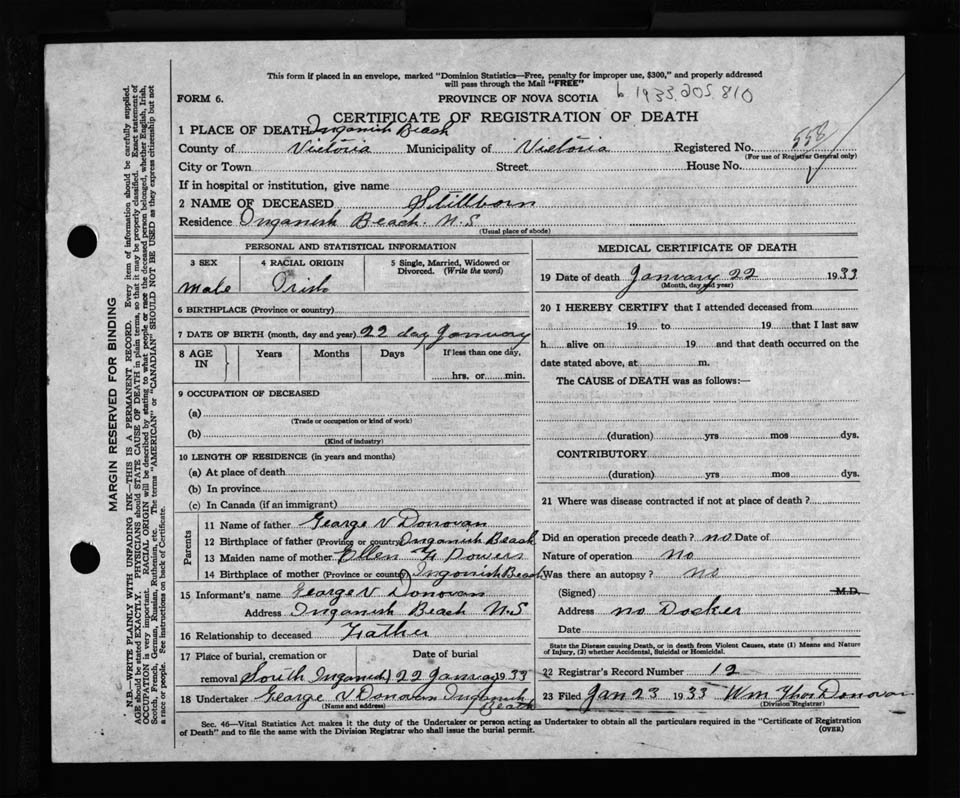 This form if placed in an envelope, marked "Dominion Statistics—Free, penalty for improper use, $300," and properly addressed
will pass through the Mail "FREE"
1933.205.810
FORM 6.
PROVINCE OF NOVA SCOTIA
CERTIFICATE OF REGISTRATION OF DEATH
1 PLACE OF DEATH Inganish Beach
County of Victoria Municipality of Victoria Registered No. 558
(For use of Registrar General only)
City or Town Street House No.
If in hospital or institution, give name
2 NAME OF DECEASED Stillborn
Residence Inganish Beach. N.S
(Usual place of abode)
PERSONAL AND STATISTICAL INFORMATION
3 SEX 4 RACIAL ORIGIN 5 Single, Married, Widowed or
Divorced. (Write the word)
male Irish
6 BIRTHPLACE (Province or country)
7 DATE OF BIRTH (month, day and year) 22 day January
8 AGE IN Years Months Days If less than one day,
hrs. or min.
9 OCCUPATION OF DECEASED
(a)
(Trade or occupation or kind of work)
(b)
(Kind of industry)
10 LENGTH OF RESIDENCE (in years and months)
(a) At place of death
(b) In province
(c) In Canada (if an immigrant)
Parents
11 Name of father George V Donovan
12 Birthplace of father (Province or country) Inganish Beach
13 Maiden name of mother Ellen Dowers
14 Birthplace of mother (Province or country) Ingonish Beach
15 Informant's name George V Donovan
Address Inganish Beach N.S
16 Relationship to deceased Father
17 Place of burial, cremation or Date of burial
removal South Inganish 22 January 1933
18 Undertaker George V Donovan Inganish
(Name and address) Beach
MEDICAL CERTIFICATE OF DEATH
19 Date of death January 22 1933
(Month, day and year)
20 I HEREBY CERTIFY that I attended deceased from
19 to 19 that I last saw
h alive on 19 and that death occurred on the
date stated above, at m.
The CAUSE of DEATH was as follows:—
(duration) yrs mos dys.
CONTRIBUTORY
(duration) yrs mos dys.
21 Where was disease contracted if not at place of death?
Did an operation precede death? no Date of
Nature of operation No
Was there an autopsy? no
(Signed) M.D.
Address no Docker
Date
State the Disease causing Death, or in death from Violent Causes, state (1) Means and Nature
of Injury, (2) whether Accidental, Suicidal or Homicidal.
22 Registrar's Record Number 12
23 Filed Jan 23 1933 Wm Thos Donovan
(Division Registrar)
Sec. 46—Vital Statistics Act makes it the duty of the Undertaker or person acting as Undertaker to obtain all the particulars required in the "Certificate of Registration
of Death" and to file the same with the Division Registrar who shall issue the burial permit.
(OVER)
MARGIN RESERVED FOR BINDING
N.B.—WRITE PLAINLY WITH UNFADING INK—THIS IS A PERMANENT RECORD. Every item of information should be carefully supplied.
AGE should be stated EXACTLY. PHYSICIANS should STATE CAUSE OF DEATH in plain terms, so that it may be properly classified. Exact statement of
OCCUPATION is very important. RACIAL ORIGIN will be described by stating to what people or race the deceased person belonged, whether English, Irish,
Scotch, French, German, Russian, Ruthenian, etc. The terms "AMERICAN" or "CANADIAN" SHOULD NOT BE USED as they express citizenship but not
a race or people. See instructions on back of Certificate.